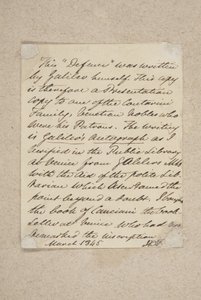 This "Defence" was written
by Galileo himself. This copy
is therefore a Presentation
copy to one of the Contarini
Family, Venetian nobles who
were his Patrons. The writing
is Galileo's Autograph as I
verified in the Public Library
at Venice from Galileo's
with the aid of the polite Lib-
rarian which ascertained the
point beyond a doubt. I bought
the book of Canciani the book
seller at Venice who had not
remarked the inscription
March 1845